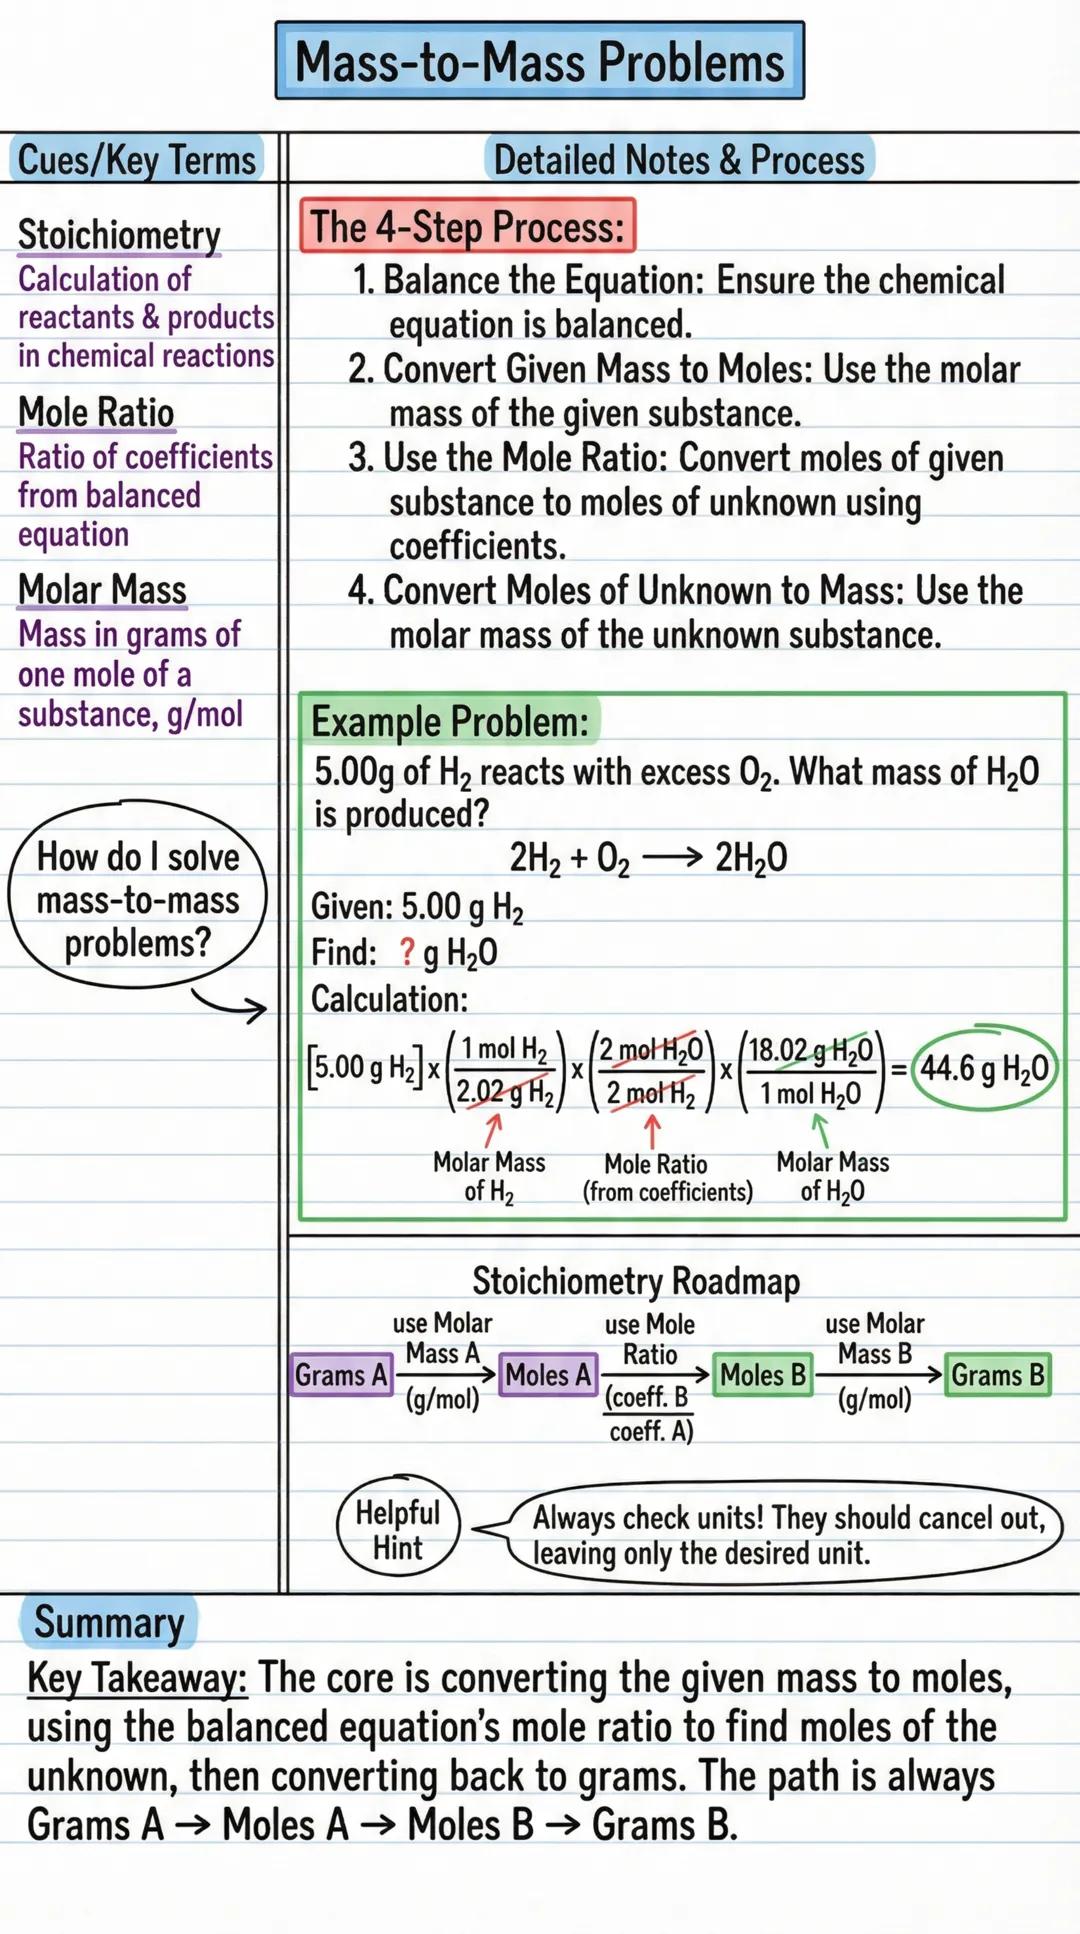 Mass-to-Mass Problems
Cues/Key Terms
Stoichiometry
Calculation of
reactants & products
in chemical reactions
Mole Ratio
Ratio of coefficients
from balanced
equation
Molar Mass
Mass in grams of
one mole of a
substance, g/mol
How do I solve
mass-to-mass
problems?
Detailed Notes & Process
The 4-Step Process:
1. Balance the Equation: Ensure the chemical
equation is balanced.
2. Convert Given Mass to Moles: Use the molar
mass of the given substance.
3. Use the Mole Ratio: Convert moles of given
substance to moles of unknown using
coefficients.
4. Convert Moles of Unknown to Mass: Use the
molar mass of the unknown substance.
Example Problem:
5.00g of H₂ reacts with excess O₂. What mass of H₂O
is produced?
2H₂ + O₂ → 2H₂O
Given: 5.00 g H₂
Find: ? g H₂O
Calculation:
[5.00 g H₂] x (1 mol H₂ / 2.02 g H₂) x (2 mol H₂O / 2 mol H₂) x (18.02 g H₂O / 1 mol H₂O) = 44.6 g H₂O
Molar Mass
of H₂
Mole Ratio
(from coefficients)
Molar Mass
of H₂O
Stoichiometry Roadmap
Grams A
use Molar
Mass A
(g/mol)
Moles A
use Mole
Ratio
(coeff. B
coeff. A)
Moles B
use Molar
Mass B
(g/mol)
Grams B
Helpful
Hint
Always check units! They should cancel out,
leaving only the desired unit.
Summary
Key Takeaway: The core is converting the given mass to moles,
using the balanced equation's mole ratio to find moles of the
unknown, then converting back to grams. The path is always
Grams A → Moles A → Moles B → Grams B.